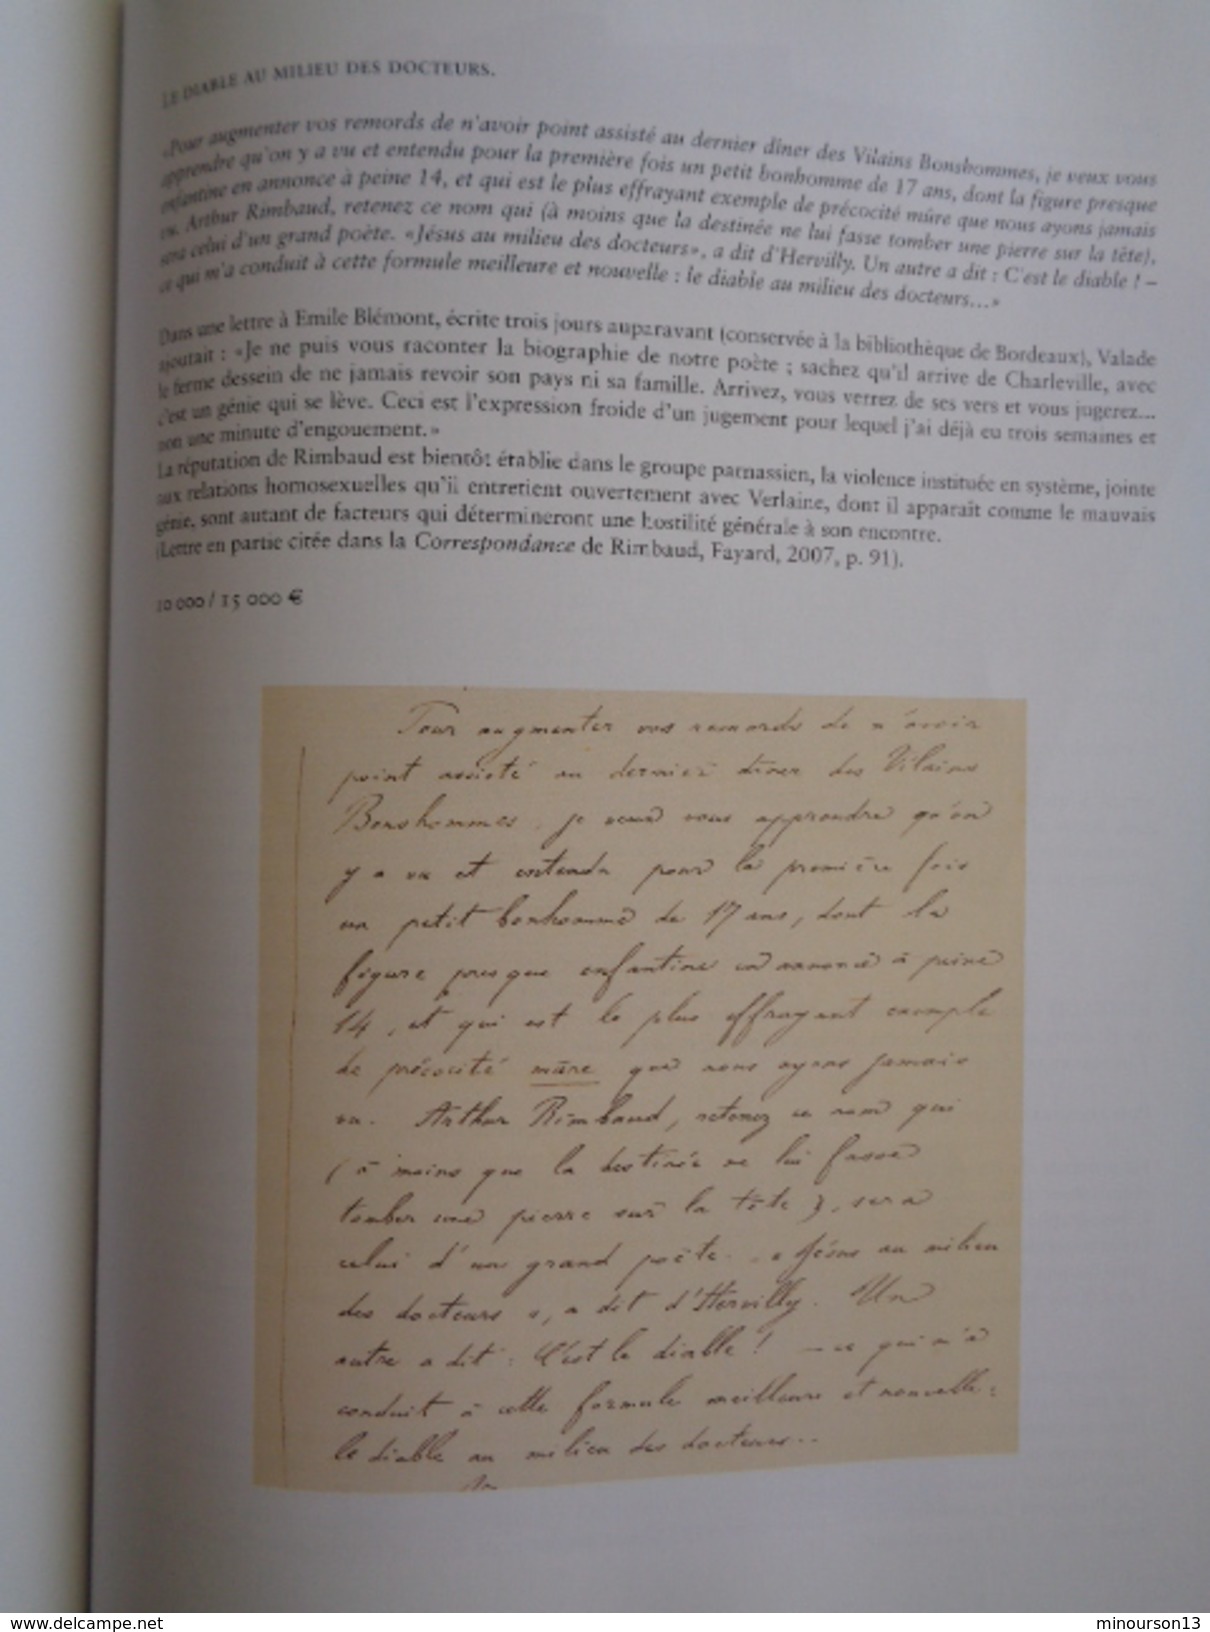 LE DIABLE AU MILIEU DES DOCTEURS.
«Pour augmenter vos remords de n'avoir point assisté au dernier dîner des Vilains Bonshommes, je veux vous
apprendre qu'on y a vu et entendu pour la première fois un petit bonhomme de 17 ans, dont la figure presque
enfantine en annonce à peine 14, et qui est le plus effrayant exemple de précocité mûre que nous ayons jamais
vu. Arthur Rimbaud, retenez ce nom qui (à moins que la destinée ne lui fasse tomber une pierre sur la tête),
sera celui d'un grand poète. «Jésus au milieu des docteurs», a dit d'Hervilly. Un autre a dit : C'est le diable ! –
ce qui m'a conduit à cette formule meilleure et nouvelle : le diable au milieu des docteurs...»
Dans une lettre à Emile Blémont, écrite trois jours auparavant (conservée à la bibliothèque de Bordeaux), Valade
ajoutait : «Je ne puis vous raconter la biographie de notre poète ; sachez qu'il arrive de Charleville, avec
le ferme dessein de ne jamais revoir son pays ni sa famille. Arrivez, vous verrez de ses vers et vous jugerez...
c'est un génie qui se lève. Ceci est l'expression froide d'un jugement pour lequel j'ai déjà eu trois semaines et
non une minute d'engouement.»
La réputation de Rimbaud est bientôt établie dans le groupe parnassien, la violence instituée en système, jointe
aux relations homosexuelles qu'il entretient ouvertement avec Verlaine, dont il apparaît comme le mauvais
génie, sont autant de facteurs qui détermineront une hostilité générale à son encontre.
(Lettre en partie citée dans la Correspondance de Rimbaud, Fayard, 2007, p. 91).
10 000 / 15 000 €
Pour augmenter vos remords de n'avoir
point assisté au dernier dîner des Vilains
Bonshommes, je veux vous apprendre qu'on
y a vu et entendu pour la première fois
un petit bonhomme de 17 ans, dont la
figure presque enfantine en annonce à peine
14, et qui est le plus effrayant exemple
de précocité mûre que nous ayons jamais
vu. Arthur Rimbaud, retenez ce nom qui
(à moins que la destinée ne lui fasse
tomber une pierre sur la tête), sera
celui d'un grand poète. – « Jésus au milieu
des docteurs », a dit d'Hervilly. Un
autre a dit : C'est le diable ! – ce qui m'a
conduit à cette formule meilleure et nouvelle :
le diable au milieu des docteurs...
www.delcampe.net
minourson13